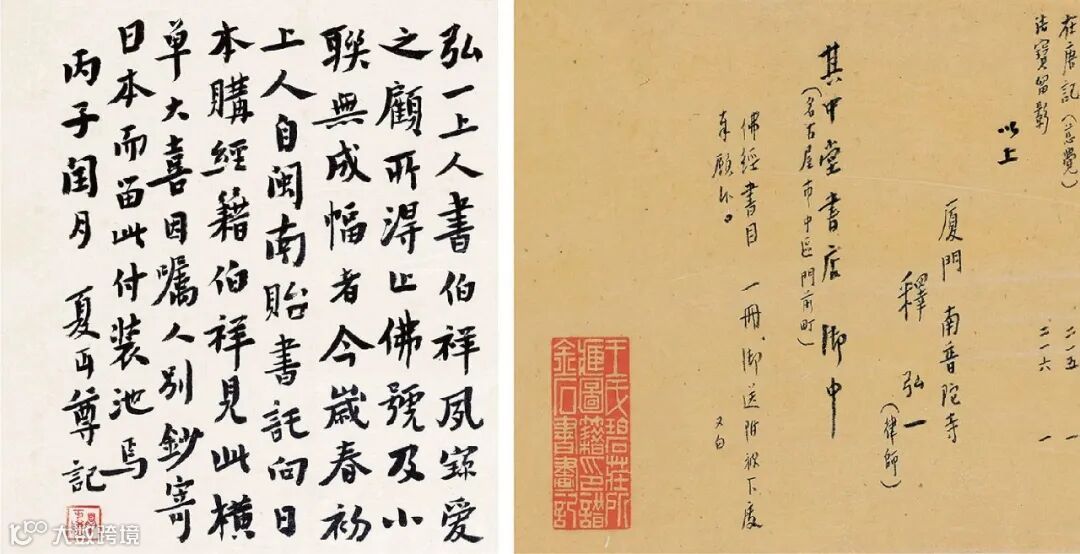 弘一上人書伯祥夙寶愛
之顧所得止佛號及小
聯無成幅者今歲春初
上人自閩南貽書託向日
本購經籍伯祥見此橫
單大喜因囑人別鈔寄
日本而留此付裝池焉
丙子閏月 夏丏尊記
在唐記(慈覺) 二一五 一
法寶留影 二一六 一
以上
厦門 南普陀寺
釋 弘一
(律師)
其中堂書店 御中
(名古屋市中區門前町)
佛經書目 一冊、御送附被下度
奉願候。 又白
匯圖籍印譜
金石書畫記
大数跨境